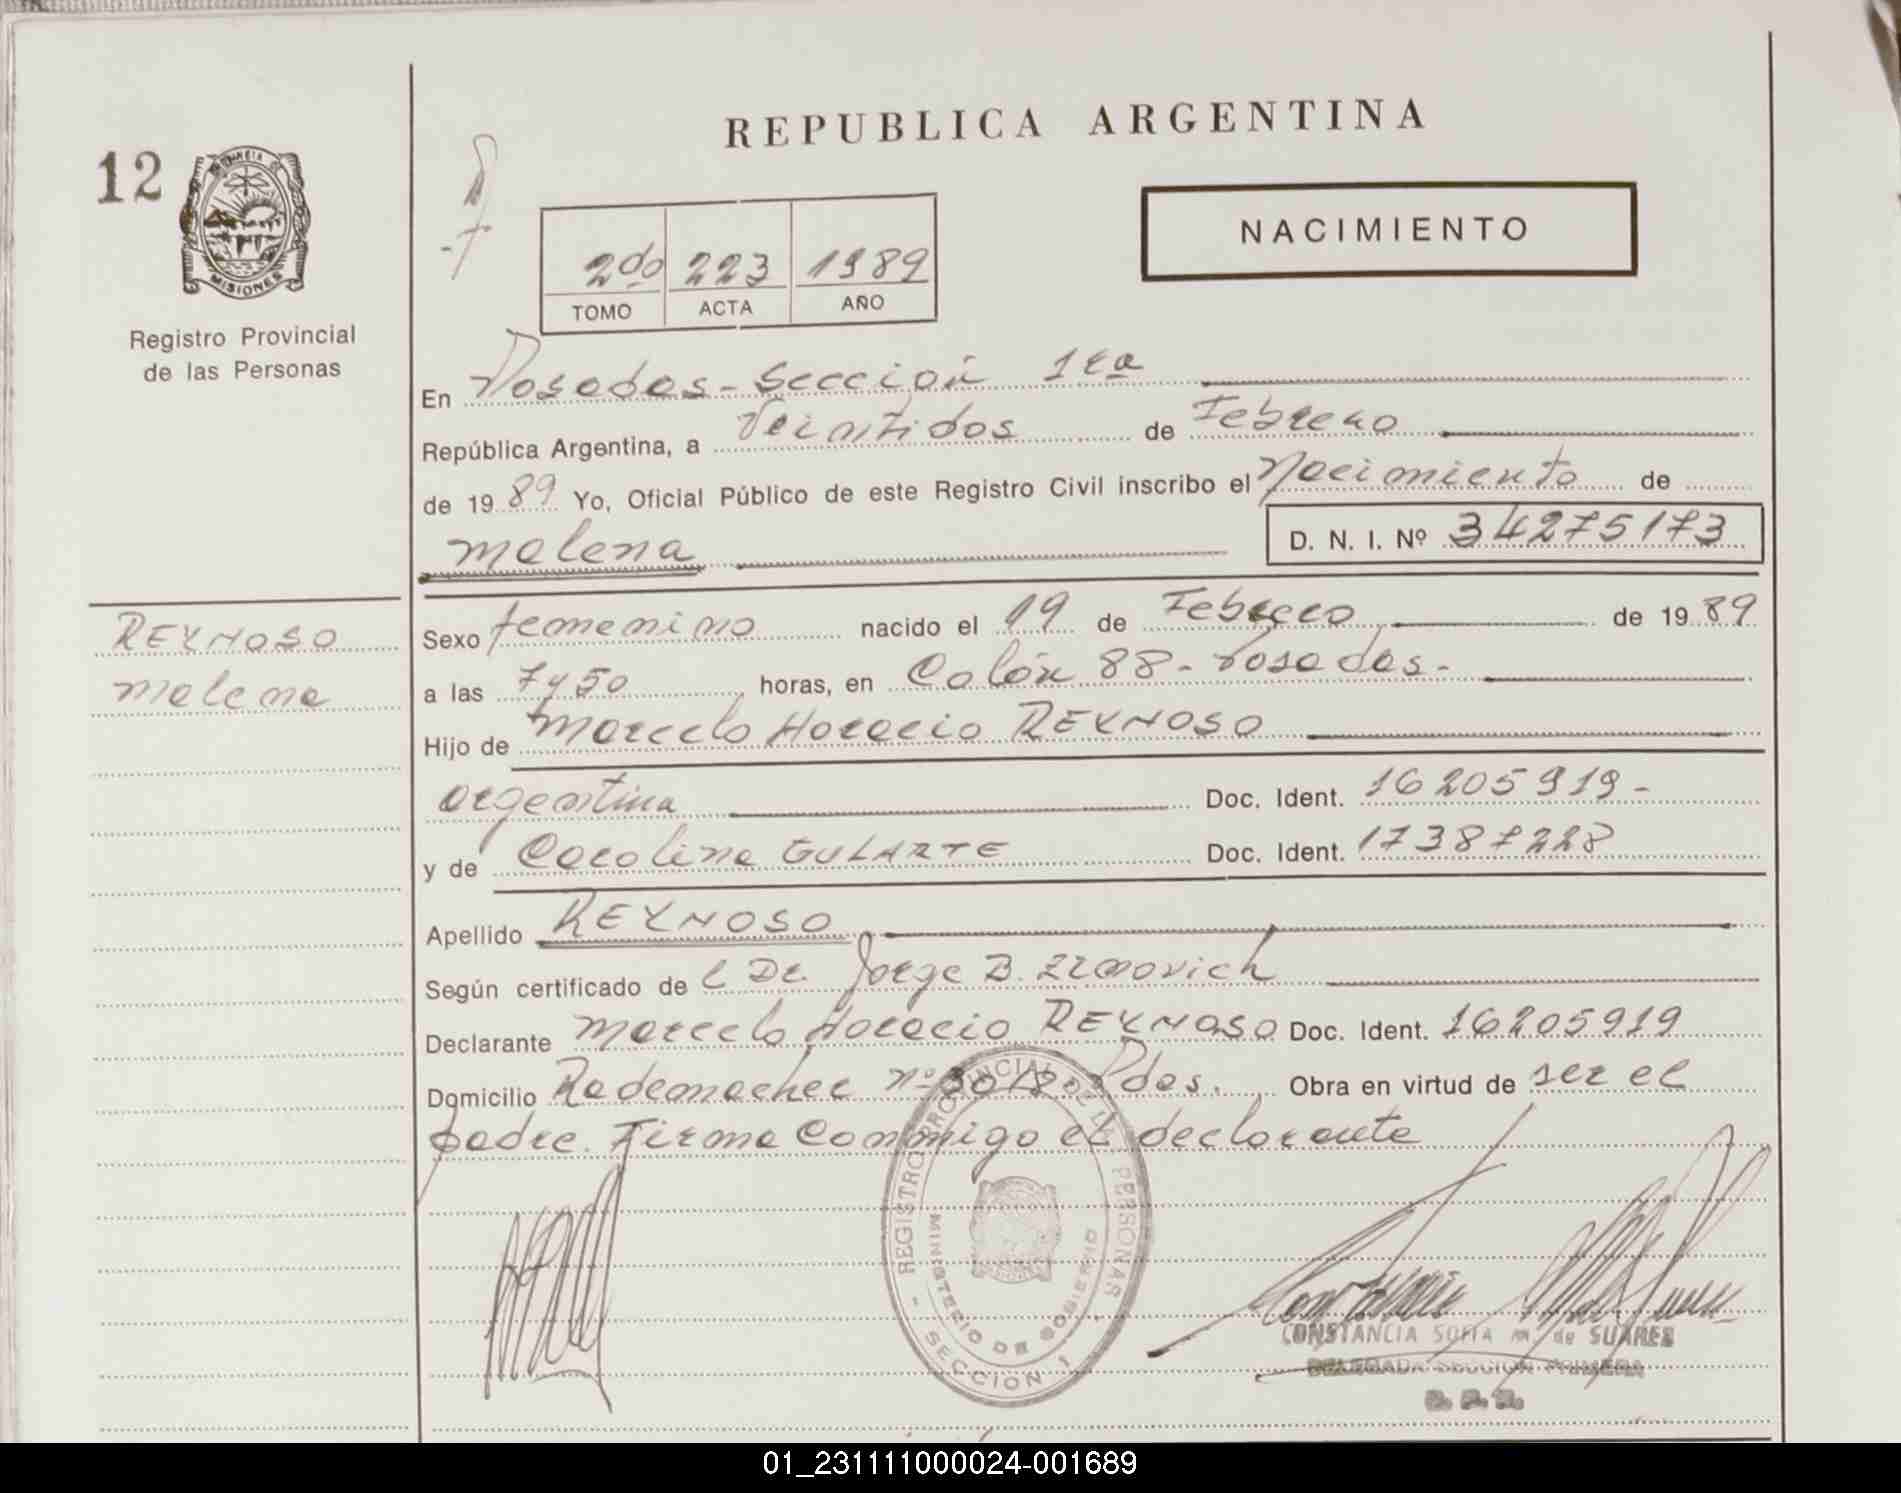 REPUBLICA ARGENTINA
12
PROVINCIA DE
MISIONES
Registro Provincial
de las Personas
NACIMIENTO
2do 223 1989
TOMO ACTA AÑO
En Posadas - Sección 1ra
República Argentina, a Veintidos de Febrero
de 19 89 Yo, Oficial Público de este Registro Civil inscribo el Nacimiento de
Malena D. N. I. Nº 34275173
REYNOSO
Malena
Sexo femenino nacido el 19 de Febrero de 19 89
a las 7 y 50 horas, en Colón 88 - Posadas -
Hijo de Marcelo Horacio REYNOSO
argentina Doc. Ident. 16205919 -
y de Carolina GULARTE Doc. Ident. 17387228
Apellido REYNOSO
Según certificado de l Dr. Jorge B.
Declarante Marcelo Horacio REYNOSO Doc. Ident. 16205919
Domicilio Rademacher nº 3018 - Pdas. Obra en virtud de ser el
padre. Firma conmigo el declarante
REGISTRO PROVINCIAL DE LAS PERSONAS
MINISTERIO DE GOBIERNO
- SECCION 1 -
CONSTANCIA SOFIA M. de SUARES
DELEGADA SECCION PRIMERA
R. P. P.
01_231111000024-001689